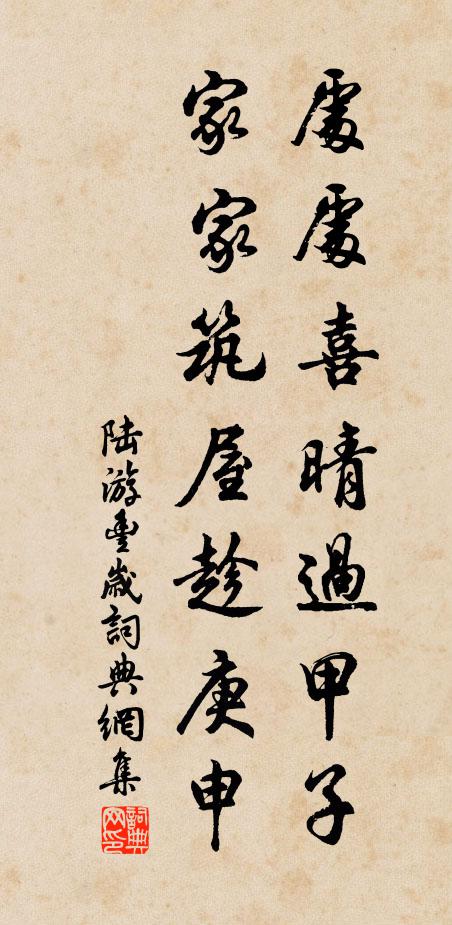 處處喜晴過甲子
家家筑屋趁庚申
陆游豐歲詞典網集
詞典网印